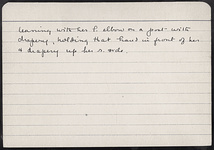 leaning with her P. elbow on a post with
drapery, holding that hand in front of her
& drapery up her s. side.